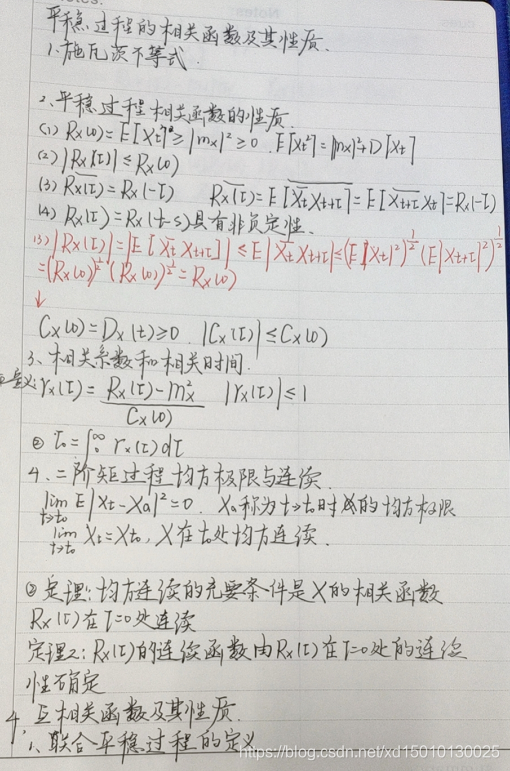 平稳过程的相关函数及其性质.
1.施瓦茨不等式.
2.平稳过程相关函数的性质.
(1) Rx(0)=E|Xt|²≥|mx|²≥0. E|Xt²|=|mx|²+D[Xt]
(2) |Rx(τ)|≤Rx(0)
(3) \overline{Rx(τ)}=Rx(-τ) \overline{Rx(τ)}=\overline{E[\overline{Xt}Xt+τ]}=E[\overline{Xt+τ}Xt]=Rx(-τ)
(4) Rx(τ)=Rx(t-s)具有非负定性.
|Rx(τ)|=|E[\overline{Xt}Xt+τ]|≤E|\overline{Xt}Xt+τ|≤(E|Xt|²)^{1/2}(E|Xt+τ|²)^{1/2}
=(Rx(0))^{1/2}(Rx(0))^{1/2}=Rx(0)
↓
Cx(0)=Dx(t)≥0. |Cx(τ)|≤Cx(0)
3、相关系数和相关时间.
定义: rx(τ)=\frac{Rx(τ)-m²x}{Cx(0)} |rx(τ)|≤1
② τ₀=∫₀^∞ rx(τ)dτ
4、二阶矩过程均方极限与连续.
lim t→t₀ E|Xt-Xa|²=0. Xa称为t→t₀时X的均方极限
lim t→t₀ Xt=Xt₀, X在t₀处均方连续.
② 定理:均方连续的充要条件是X的相关函数
Rx(τ)在τ=0处连续
定理2: Rx(τ)的连续函数由Rx(τ)在τ=0处的连续
性确定
4、互相关函数及其性质.
1、联合平稳过程的定义
https://blog.csdn.net/xd15010130025